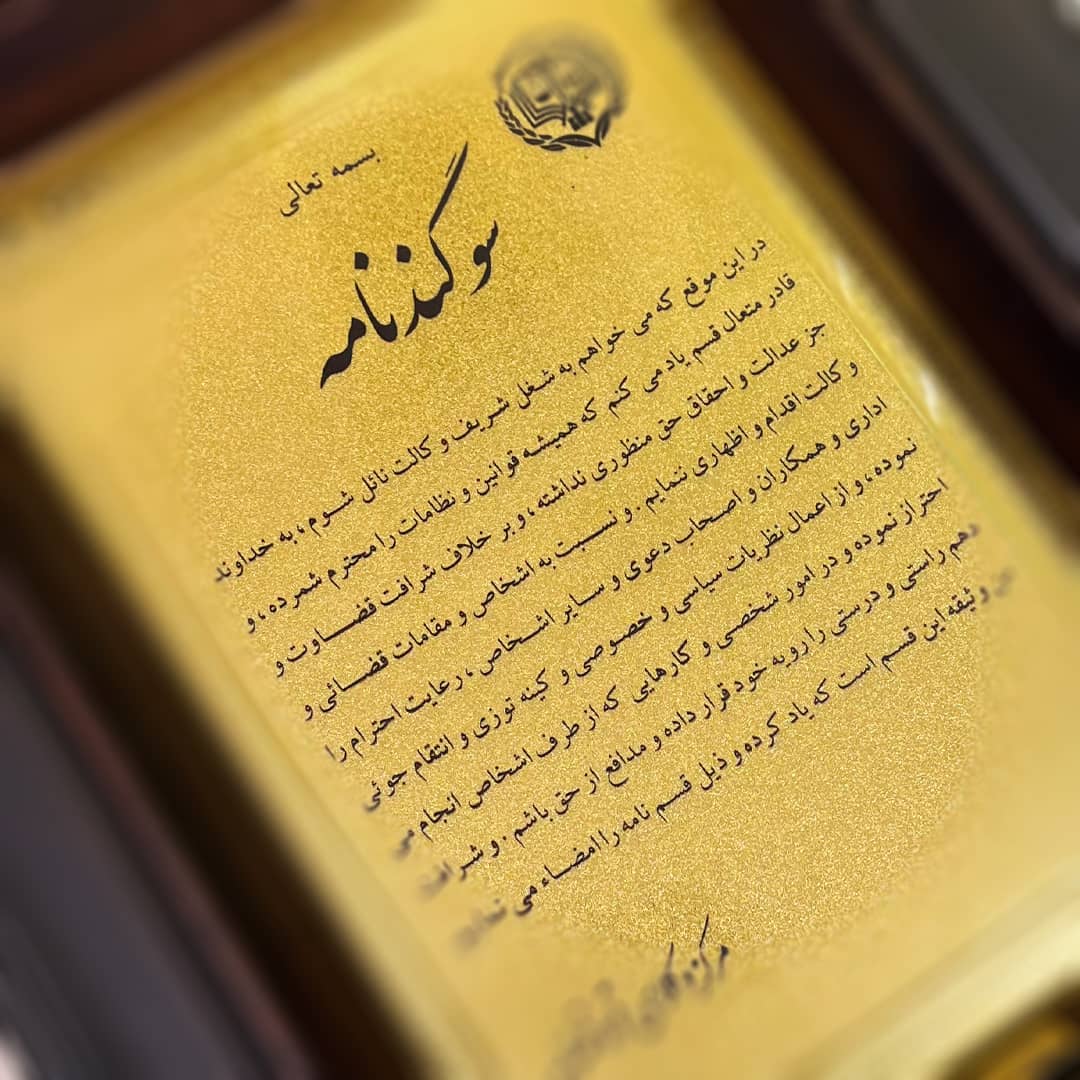 بسمه تعالی
سوگندنامه
در این موقع که می خواهم به شغل شریف وکالت نائل شوم ، به خداوند
قادر متعال قسم یاد می کنم که همیشه قوانین و نظامات را محترم شمرده ، و
جز عدالت و احقاق حق منظوری نداشته ، و بر خلاف شرافت قضاوت و
وکالت اقدام و اظهاری ننمایم . و نسبت به اشخاص و مقامات قضائی و
اداری و همکاران و اصحاب دعوی و سایر اشخاص ، رعایت احترام را
نموده ، و از اعمال نظریات سیاسی و خصوصی و کینه توزی و انتقام جوئی
احتراز نموده و در امور شخصی و کارهایی که از طرف اشخاص انجام می
دهم راستی و درستی را رویه خود قرار داده و مدافع از حق باشم . و شرافت
وثیقه این قسم است که یاد کرده و ذیل قسم نامه را امضاء می نمایم
مرکز وکلای